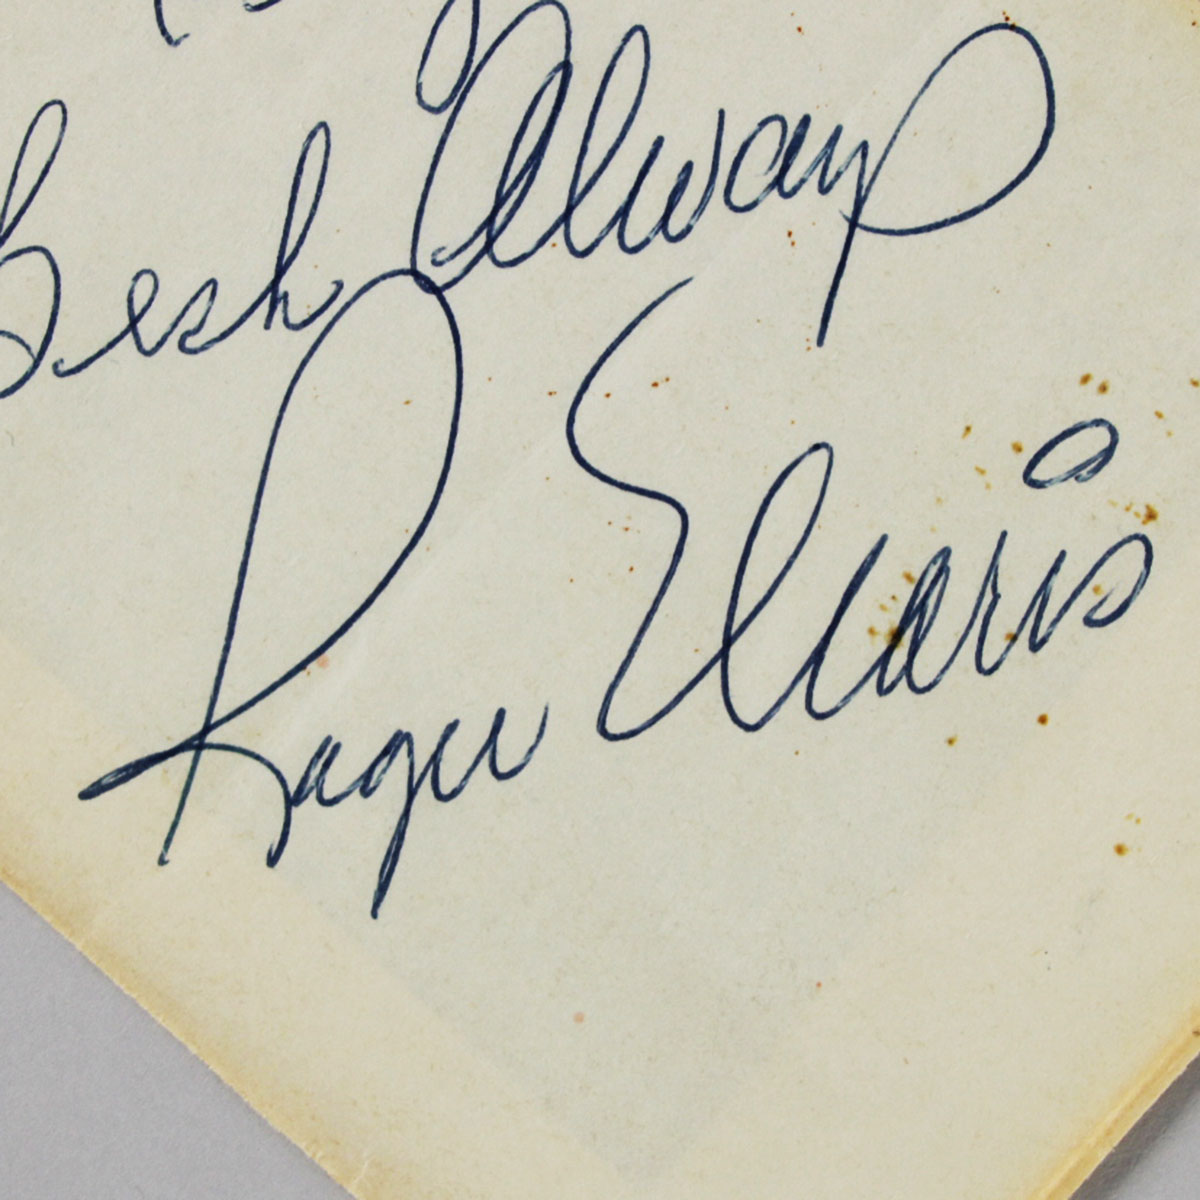 Best Always
Roger Maris